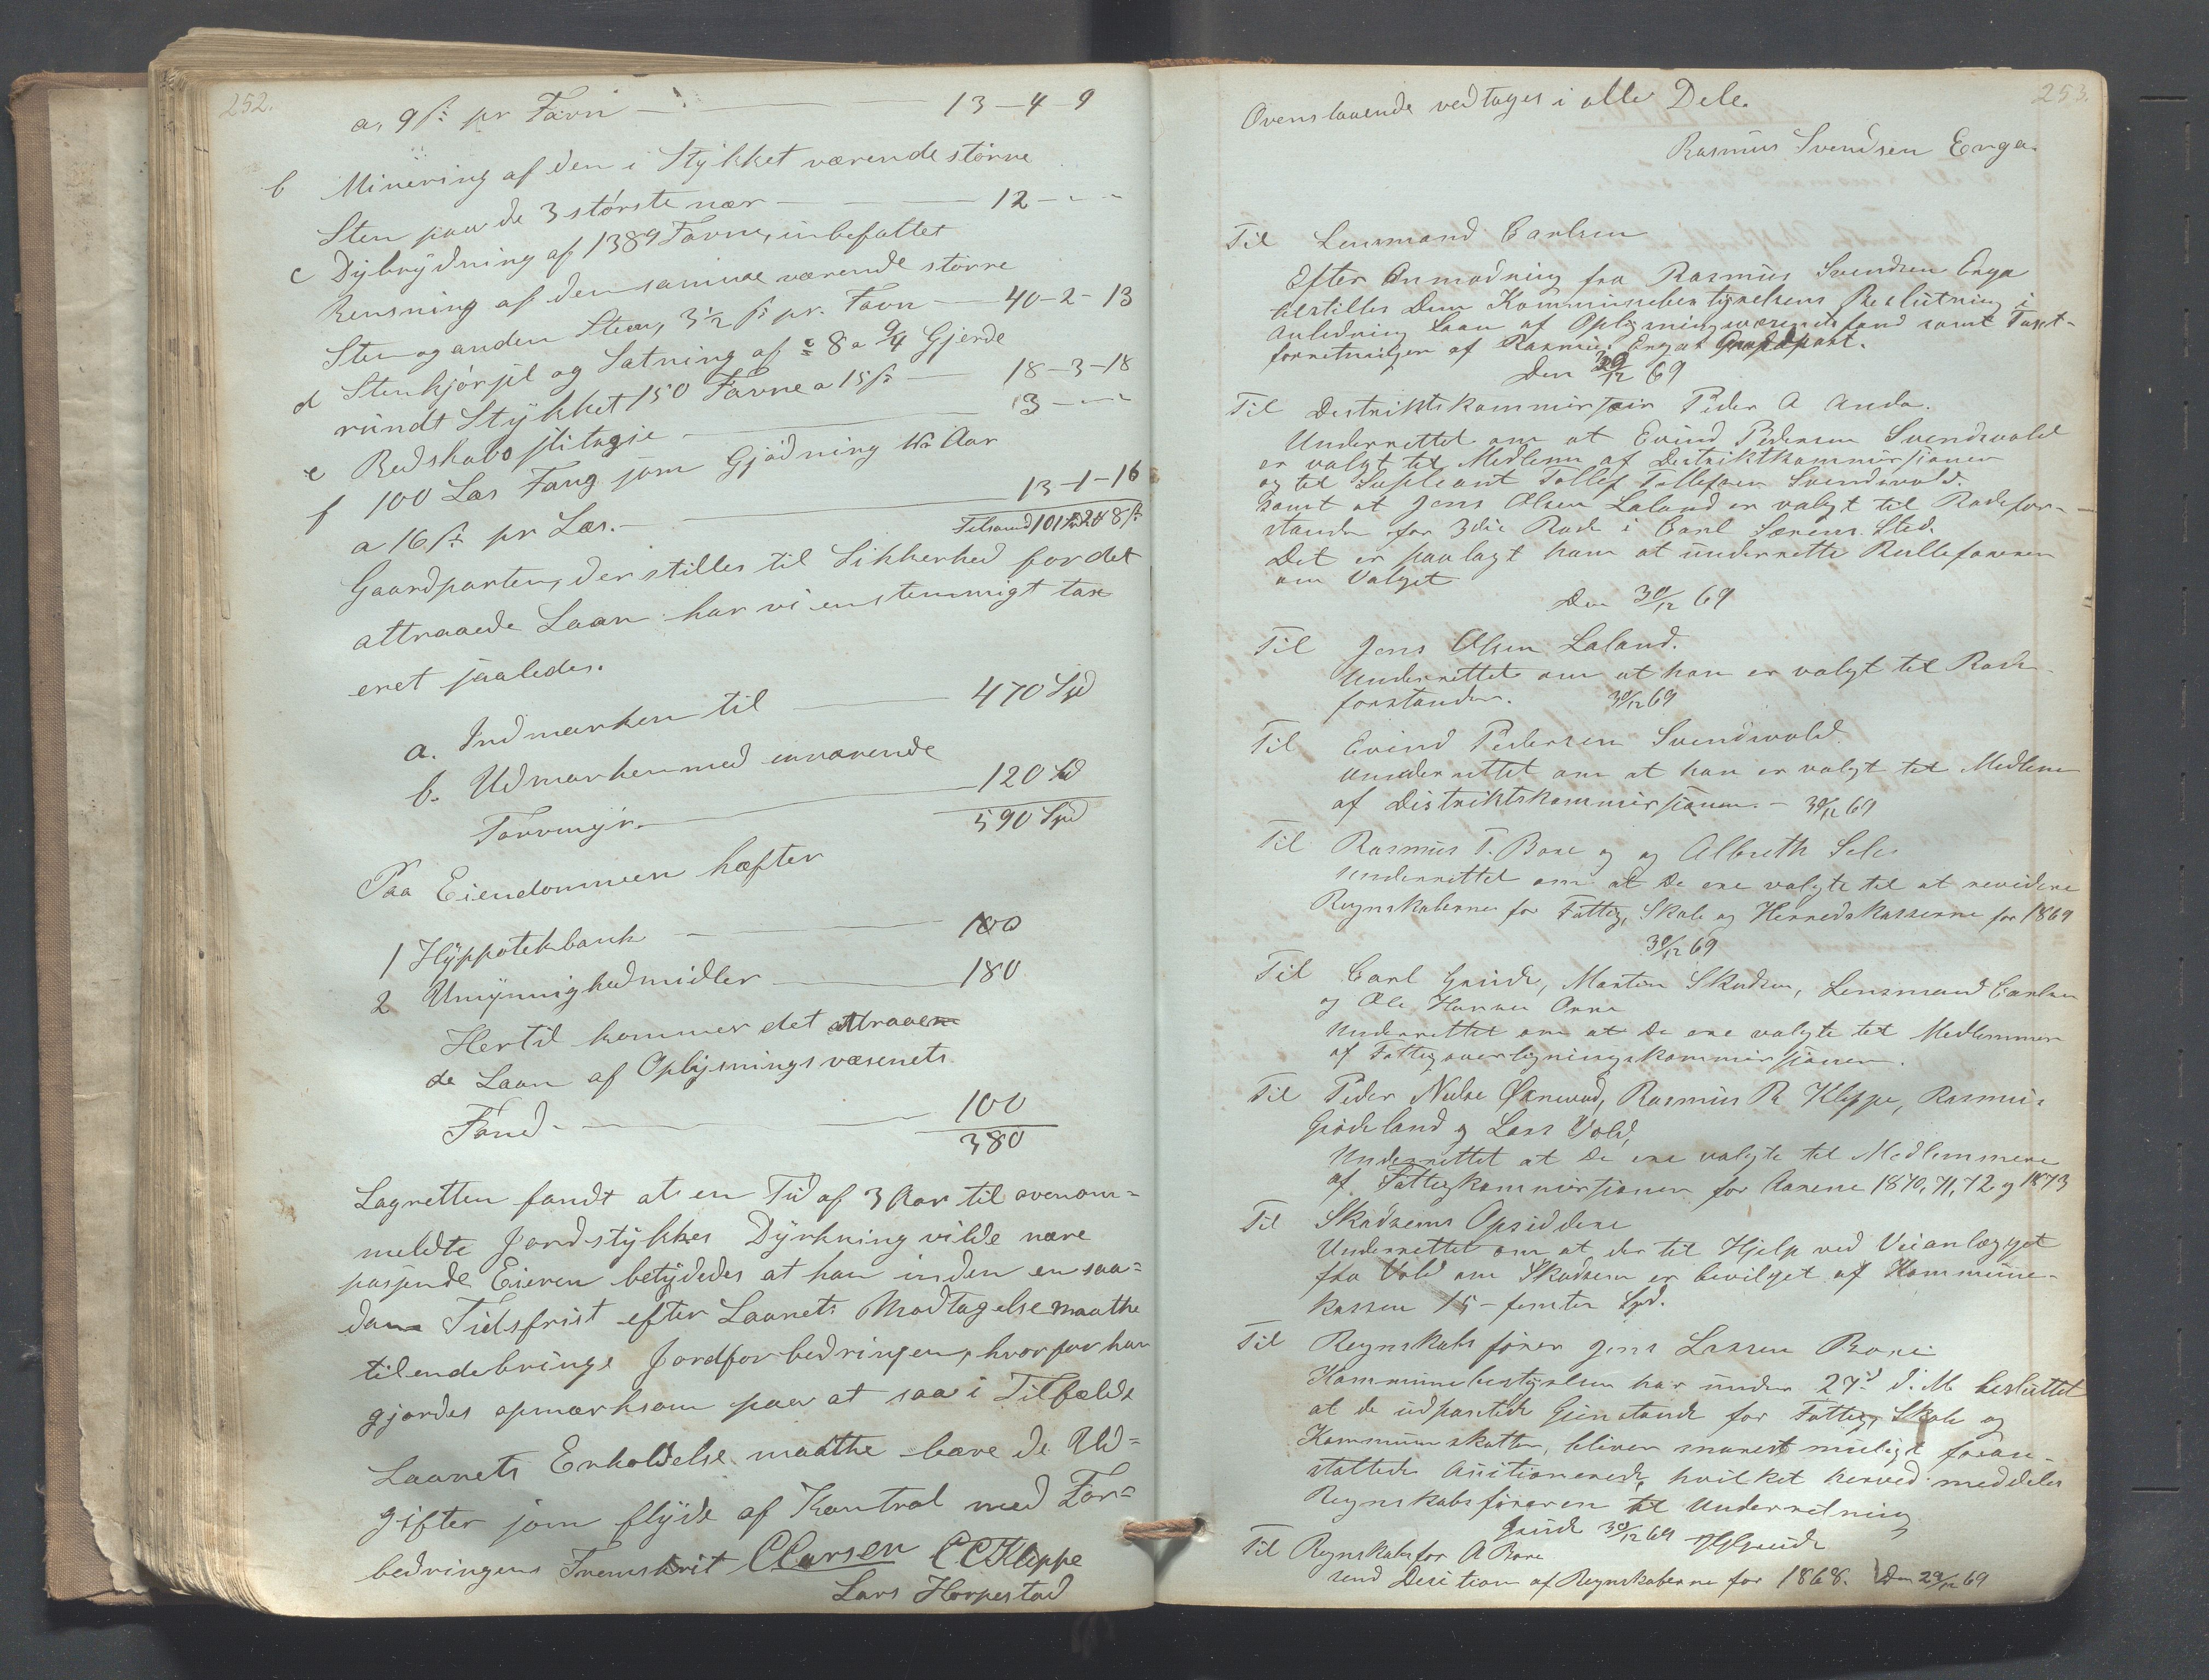 252.
a, 9 ſs pr Favn — 13 — 4 — 9
b Minering af den i Stykket værende større
Sten paa de 3 største nær — 12 - - -
c Dybrydning af 1389 Favne, inbefattet
Rensning af den samme værende større
Sten og anden Sten, 3½ ſs pr. Favn — 40 - 2 - 13
d Stenkjørsel og Sætning af 8 a 9/4 Gjerde
rundt Stykket 150 Favne a 15 ſs — 18 - 3 - 18
e Redskabs slitagie — 3 - - -
f 100 Læs Tang som Gjødning pr Aar
a 16 ſs pr Læs. — 13 - 1 - 16
Tilsamd 101 Spd 2 8 ſs
Gaardparten, der stilles til Sikkerhed for det
attraaede Laan har vi enstemmigt tax
eret saaledes.
a. Indmarken til — 470 Spd
b. Udmarken med iværende
Torvmyr. — 120 Spd
590 Spd
Paa Eiendommen hæfter
1 Hyppotekbank — 100
2 Umyndighedmidler — 180
Hertil kommer det attraae
de Laan af Oplysningsvæsenets
Fond. — 100
380
Lagretten fandt at en Tid af 3 Aar til ovenom=
meldte Jordstykkes Dyrkning vilde være
passende Eieren betydedes at han inden en saa=
dan Tidsfrist efter Laanets Modtagelse maatte
tilendebringe Jordforbedringen, hvorfor han
gjordes opmærksom paa at saa i Tilfælde
Laanets Erholdelse maatte bære de Ud=
gifter som flyde af Kontrol med For=
bedringens Fremskrit CCarsen CCKleppe
Lars Horpestad
253.
Ovenstaaende vedtages i alle Dele.
Rasmus Svendsen Enga.
Til Lensmand Carlsen
Efter Anmodning fra Rasmus Svendsen Enga
tilstilles Dem Kommunebestyrelsens Beslutning i
anledning Laan af Oplysningsvæsenets fond samt Taxt-
forretningen af Rasmus Engas Gaardpart.
Den 30/12 69
Til Distriktskommissair Peder A Anda.
Underrettet om at Evind Pedersen Svendsvold
er valgt til Medlem af Distriktkommissionen
og til Supleant Tollef Tollefsen Svendsvold.
samt at Jens Olsen Laland er valgt til Rodefor-
stander for 3die Rode i Carl Sørens. Sted.
Det er paalagt ham at underrette Rulleføreren
om Valget
Den 30/12 69
Til Jens Olsen Laland.
Underrettet om at han er valgt til Rode-
forstander. 30/12 69
Til Evind Pedersen Svendsvold.
Underrettet om at han er valgt til Medlem
af Distriktskommissionen. — 30/12 69
Til Rasmus T. Bore og og Albreth Sele
Underrettet om at De ere valgte til at revidere
Regnskaberne for Fattig, Skole og Herredskasserne for 1869
30/12 69
Til Carl Grude, Morten Skadsem, Lensmand Carlsen
og Ole Hansen Orre
Underrettet om at De ere valgte til Medlemmer
af Fattigoverligningskommissionen.
Til Peder Nielse Øxnevad, Rasmus R Kleppe, Rasmus
Grødeland og Lars Vold,
Underrettet at De ere valgte til Medlemmer
af Fattigkommissionen for Aarene 1870, 71, 72 og 1873
Til Skadsems Opsiddere
Underrettet om at der til Hjelp ved Veianlægget
fra Vold om Skadsem er bevilget af Kommune-
kassen 15 — femten Spd.
Til Regnskabsfører Jens Larsen Bore
Kommunebestyrelsen har under 27d d. M. besluttet
at de udpantede Gjenstande for Fattig, Skole og
Kommuneskatten, bliver snarest muligt foran-
staltede Auktionerede, hvilket herved meddeles
Regnskabsføreren til Underretning
Grude 30/12 69 HGrude
Til Regnskabsfør A Bore
send Desition af Regnskaberne for 1868. Den 29/12 69